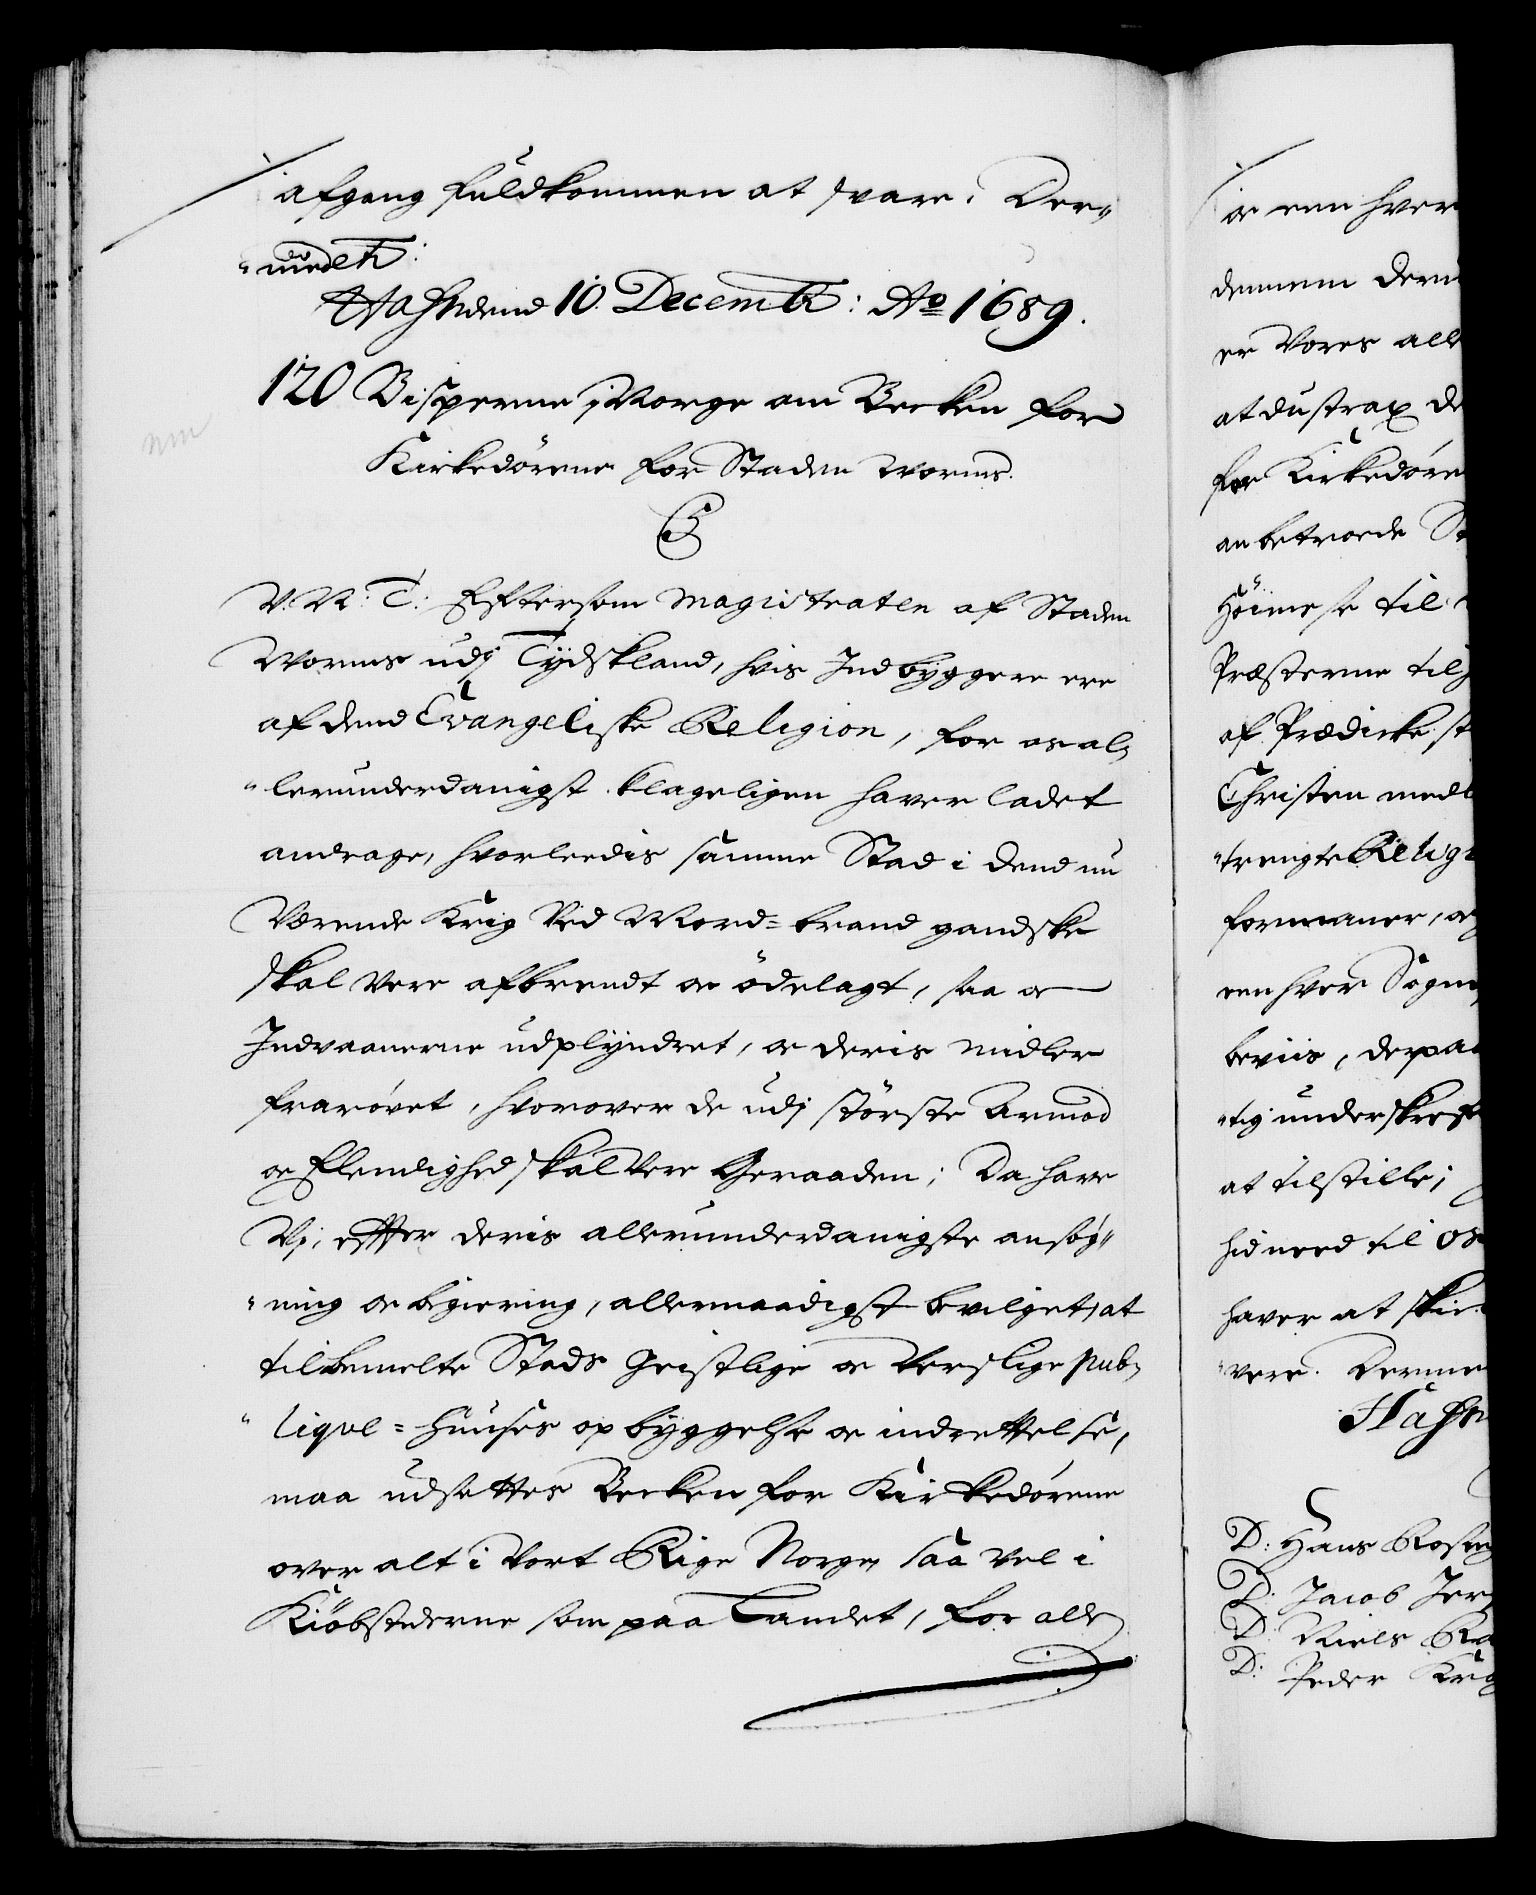 afgang fuldkommen at svare. Der„
„med etc:
Hafn dend 10 Decembr: Ao 1689.
120 Bisperne i Norge om Becken for
Kirkedörene for Staden Worms.
C5
V. N. T. Eftersom Magistraten af Staden
Worms udj Tydskland, hvis Indbyggere ere
af dend Evangeliske Religion, for os al„
„lerunderdanigst klageligen haver ladet
andrage, hvorledis samme Stad i dend nu
værende Krig ved Mord=brand gandske
skal vere afbrendt oc ödelagt, saa oc
Indvaanerne udplyndret, oc deris midler
frarövet, hvorover de udj störste Armod
oc Elendighed skal vere Geraaden; Da have
Vj, effter deris allerunderdanigste ansög„
„ning oc begiering, allernaadigst bevilget, at
til bemelte Stads Geistlige oc Verslige pub„
„lique=Huuses opbyggelse oc indrettelse,
maa udsettes Becken for Kirkedörene
over alt i Vort Rige Norge, saa vel i
Kiöbstederne som paa Landet, for alle
oc een hver
dennem deru
er Vores all
at du strax de
for Kirkedöre
anbetroede St
Höimesse til
Præsterne til
af Prædicke st
Christen medl
„trengte Religi
formaner, oc
een hver Sogne
beviis, derpaa
„tig underskreft
at tilstille;
hid need til os
haver at skie
„vere. Derme
Hafn
D: Hans Rosing
D: Jacob Jer
D: Niels Ra
D: Peder Krog